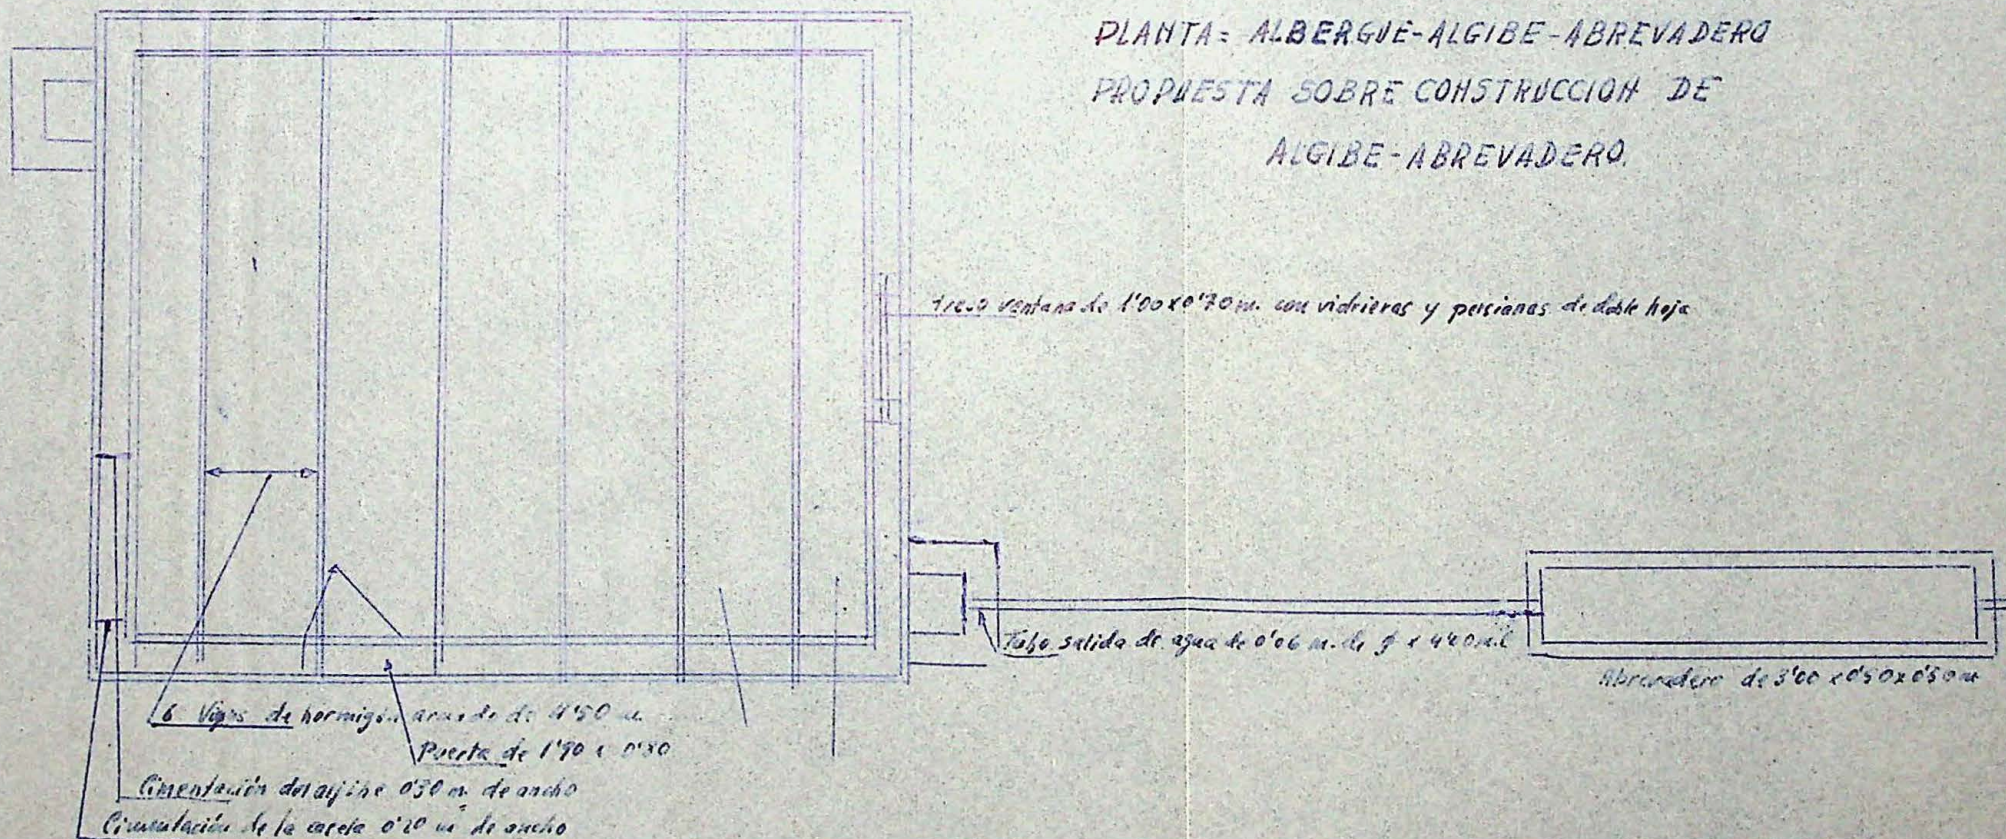 PLANTA= ALBERGUE-ALGIBE-ABREVADERO
PROPUESTA SOBRE CONSTRUCCION DE
ALGIBE-ABREVADERO.
ventana de 1'00x0'70m. con vidrieras y persianas de doble hoja
Tubo salida de agua de 0'06 m. de
Abrevadero de 3'00 x0'50x0'50m
6 Vigas de hormigón armado de 4'50 m
Puerta de 1'90 x 0'80
Cimentación del aljibe 0'30 m de ancho
Cimentación de la caseta 0'20 m de ancho